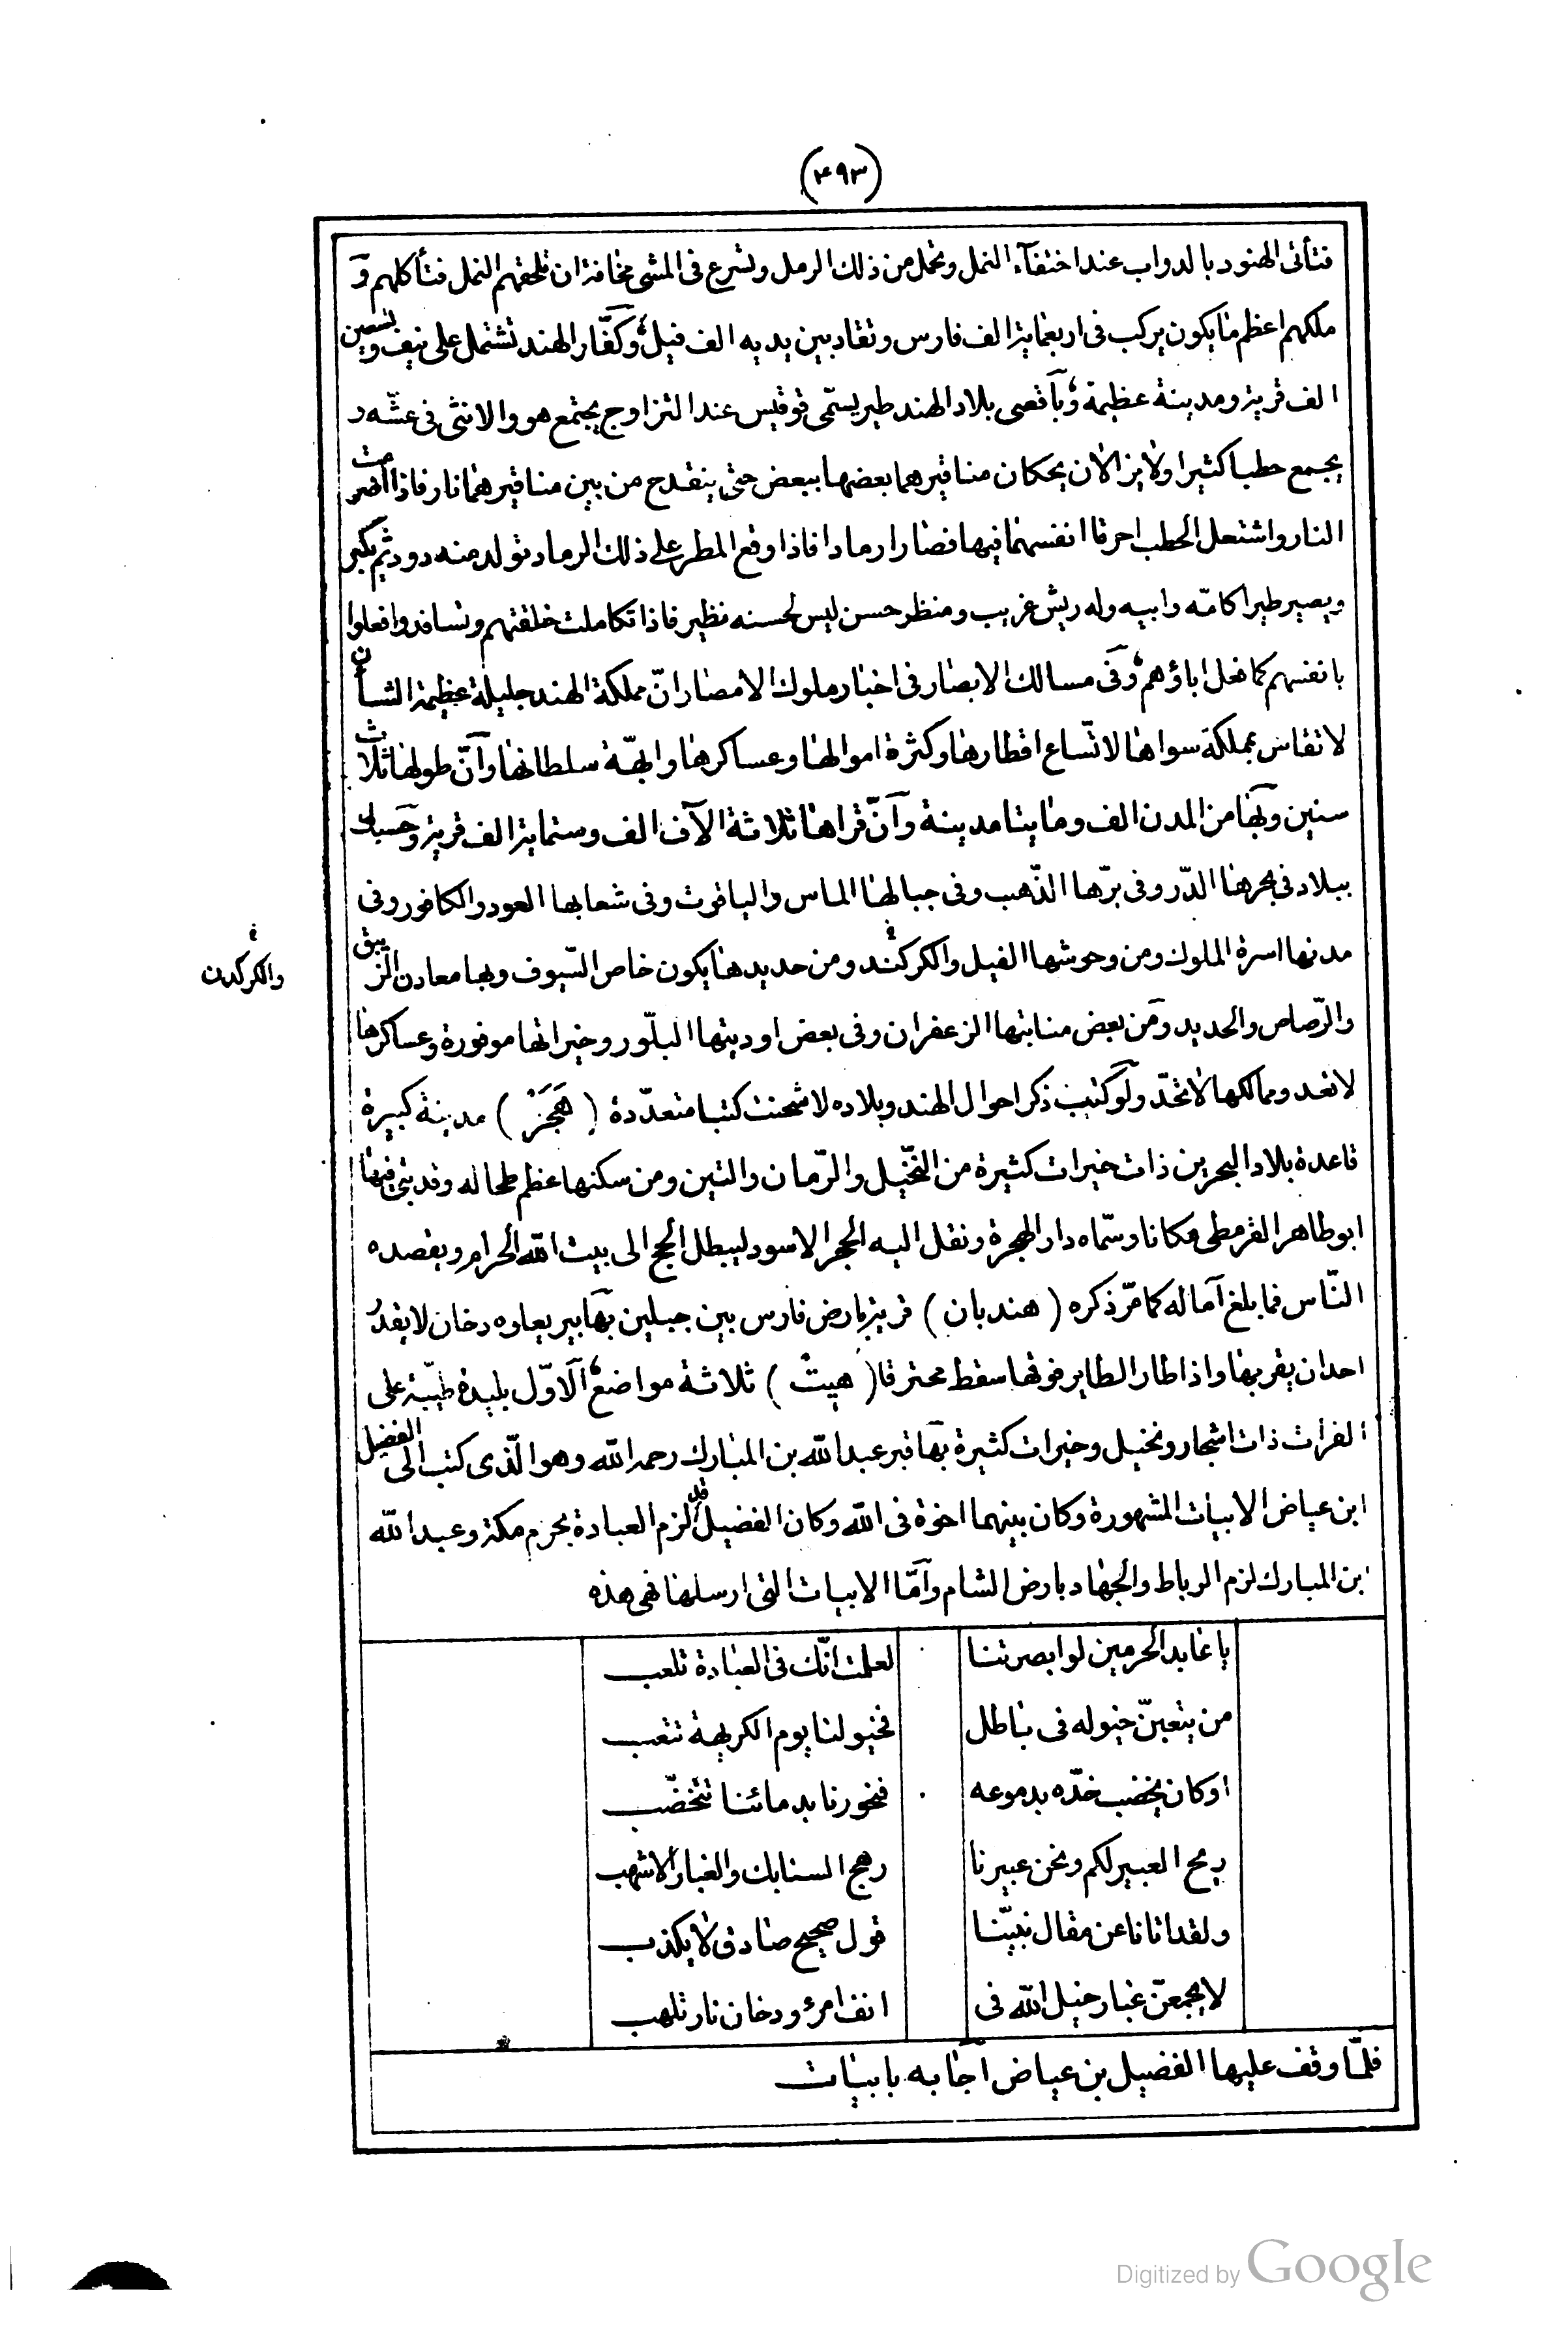 (۴۹۳)
فتأتى الهنود بالدواب عند اختفآء النمل وتحمل من ذلك الرمل وتسرع فى المشى مخافة ان تلحقهم النمل فتأكلهم وَ
ملكهم اعظم ما يكون يركب فى اربعماية الف فارس وتقاد بين يديه الف فيل وكفّار الهند تشتمل على نيف وتسعين
الف قرية ومدينة عظيمة وبأقصى بلاد الهند طير يسمّى قوقيس عند التزاوج يجتمع هو والانثى فى عشّه و
يجمع حطبا كثيرا ولا يزالان يحكان مناقيرهما بعضها ببعض حتى ينقدح من بين مناقيرهما نار فاذا اضرمت
النار واشتعل الحطب احرقا انفسهما فيها فصارا رمادا فاذا وقع المطر على ذلك الرماد تولد منه دود ثم يكبر
ويصير طيرا كامّه وابيه وله ريش غريب ومنظر حسن ليس لحسنه نظير فاذا تكاملت خلقتهم وتسافدوا فعلوا
بانفسهم كما فعل اباؤهم وفى مسالك الابصار فى اخبار ملوك الامصار انّ مملكة الهند جليلة عظيمة الشأن
لا تقاس بمملكة سواها لاتّساع اقطارها وكثرة اموالها وعساكرها وابهّة سلطانها وانّ طولها ثلاث
سنين وبها من المدن الف ومايتا مدينة وانّ قراها ثلاثة الآف الف وستماية الف قرية وحسبك
ببلاد فى بحرها الدّر وفى برّها الذّهب وفى جبالها الماس والياقوت وفى شعابها العود والكافور وفى
مدنها اسرة الملوك ومن وحوشها الفيل والكركند ومن حديدها يكون خاص السّيوف وبها معادن الزيبق
والكركدن
والرّصاص والحديد ومن بعض منابتها الزعفران وفى بعض اوديتها البلّور وخيراتها موفورة وعساكرها
لا تعد وممالكها لا تحّد ولو كتب ذكر احوال الهند وبلاده لاشحنت كتبا متعدّدة ( هَجَرْ ) مدينة كبيرة
قاعدة بلاد البحرين ذات خيرات كثيرة من النّخيل والرّمان والتين ومن سكنها عظم طحاله وقد بنى فيها
ابو طاهر القرمطى مكانا وسمّاه دار الهجرة ونقل اليه الحجر الاسود ليبطل الحج الى بيت الله الحرام ويقصده
النّاس فما بلغ آماله كما مرّ ذكره ( هنديان ) قرية بارض فارس بين جبلين بها بير يعلوه دخان لا يقدرُ
احد ان يقربها واذا طار الطاير فوقها سقط محترقا ( هيتْ ) ثلاثة مواضع الاوّل بليدة طيّبة على
الفرات ذات اشجار ونخيل وخيرات كثيرة بها قبر عبد الله بن المبارك رحمه الله وهو الّذى كتب الى الفضيل
ابن عياض الابيات المشهورة وكان بينهما اخوة فى الله وكان الفضيل قد لزم العبادة بحرم مكة وعبد الله
بن المبارك لزم الرباط والجهاد بارض الشام وامّا الابيات التى ارسلها فهى هذه
يا عابد الحرمين لو ابصرتنا لعلمت انّك فى العبادة تلعب
من يتعبنّ خيوله فى باطل فخيولنا يوم الكريهة تتعب
او كان يخضب خدّه بدموعه فنحورنا بدمائنا تتخضّب
ريح العبير لكم ونحن عبيرنا رهج السنابك والغبار الاشهب
ولقد اتانا عن مقال نبيّنا قول صحيح صادق لا يكذب
لا يجمعنّ غبار خيل الله فى انف امرئ ودخان نار تلهب
فلمّا وقف عليها الفضيل بن عياض اجابه بابيات
Digitized by Google